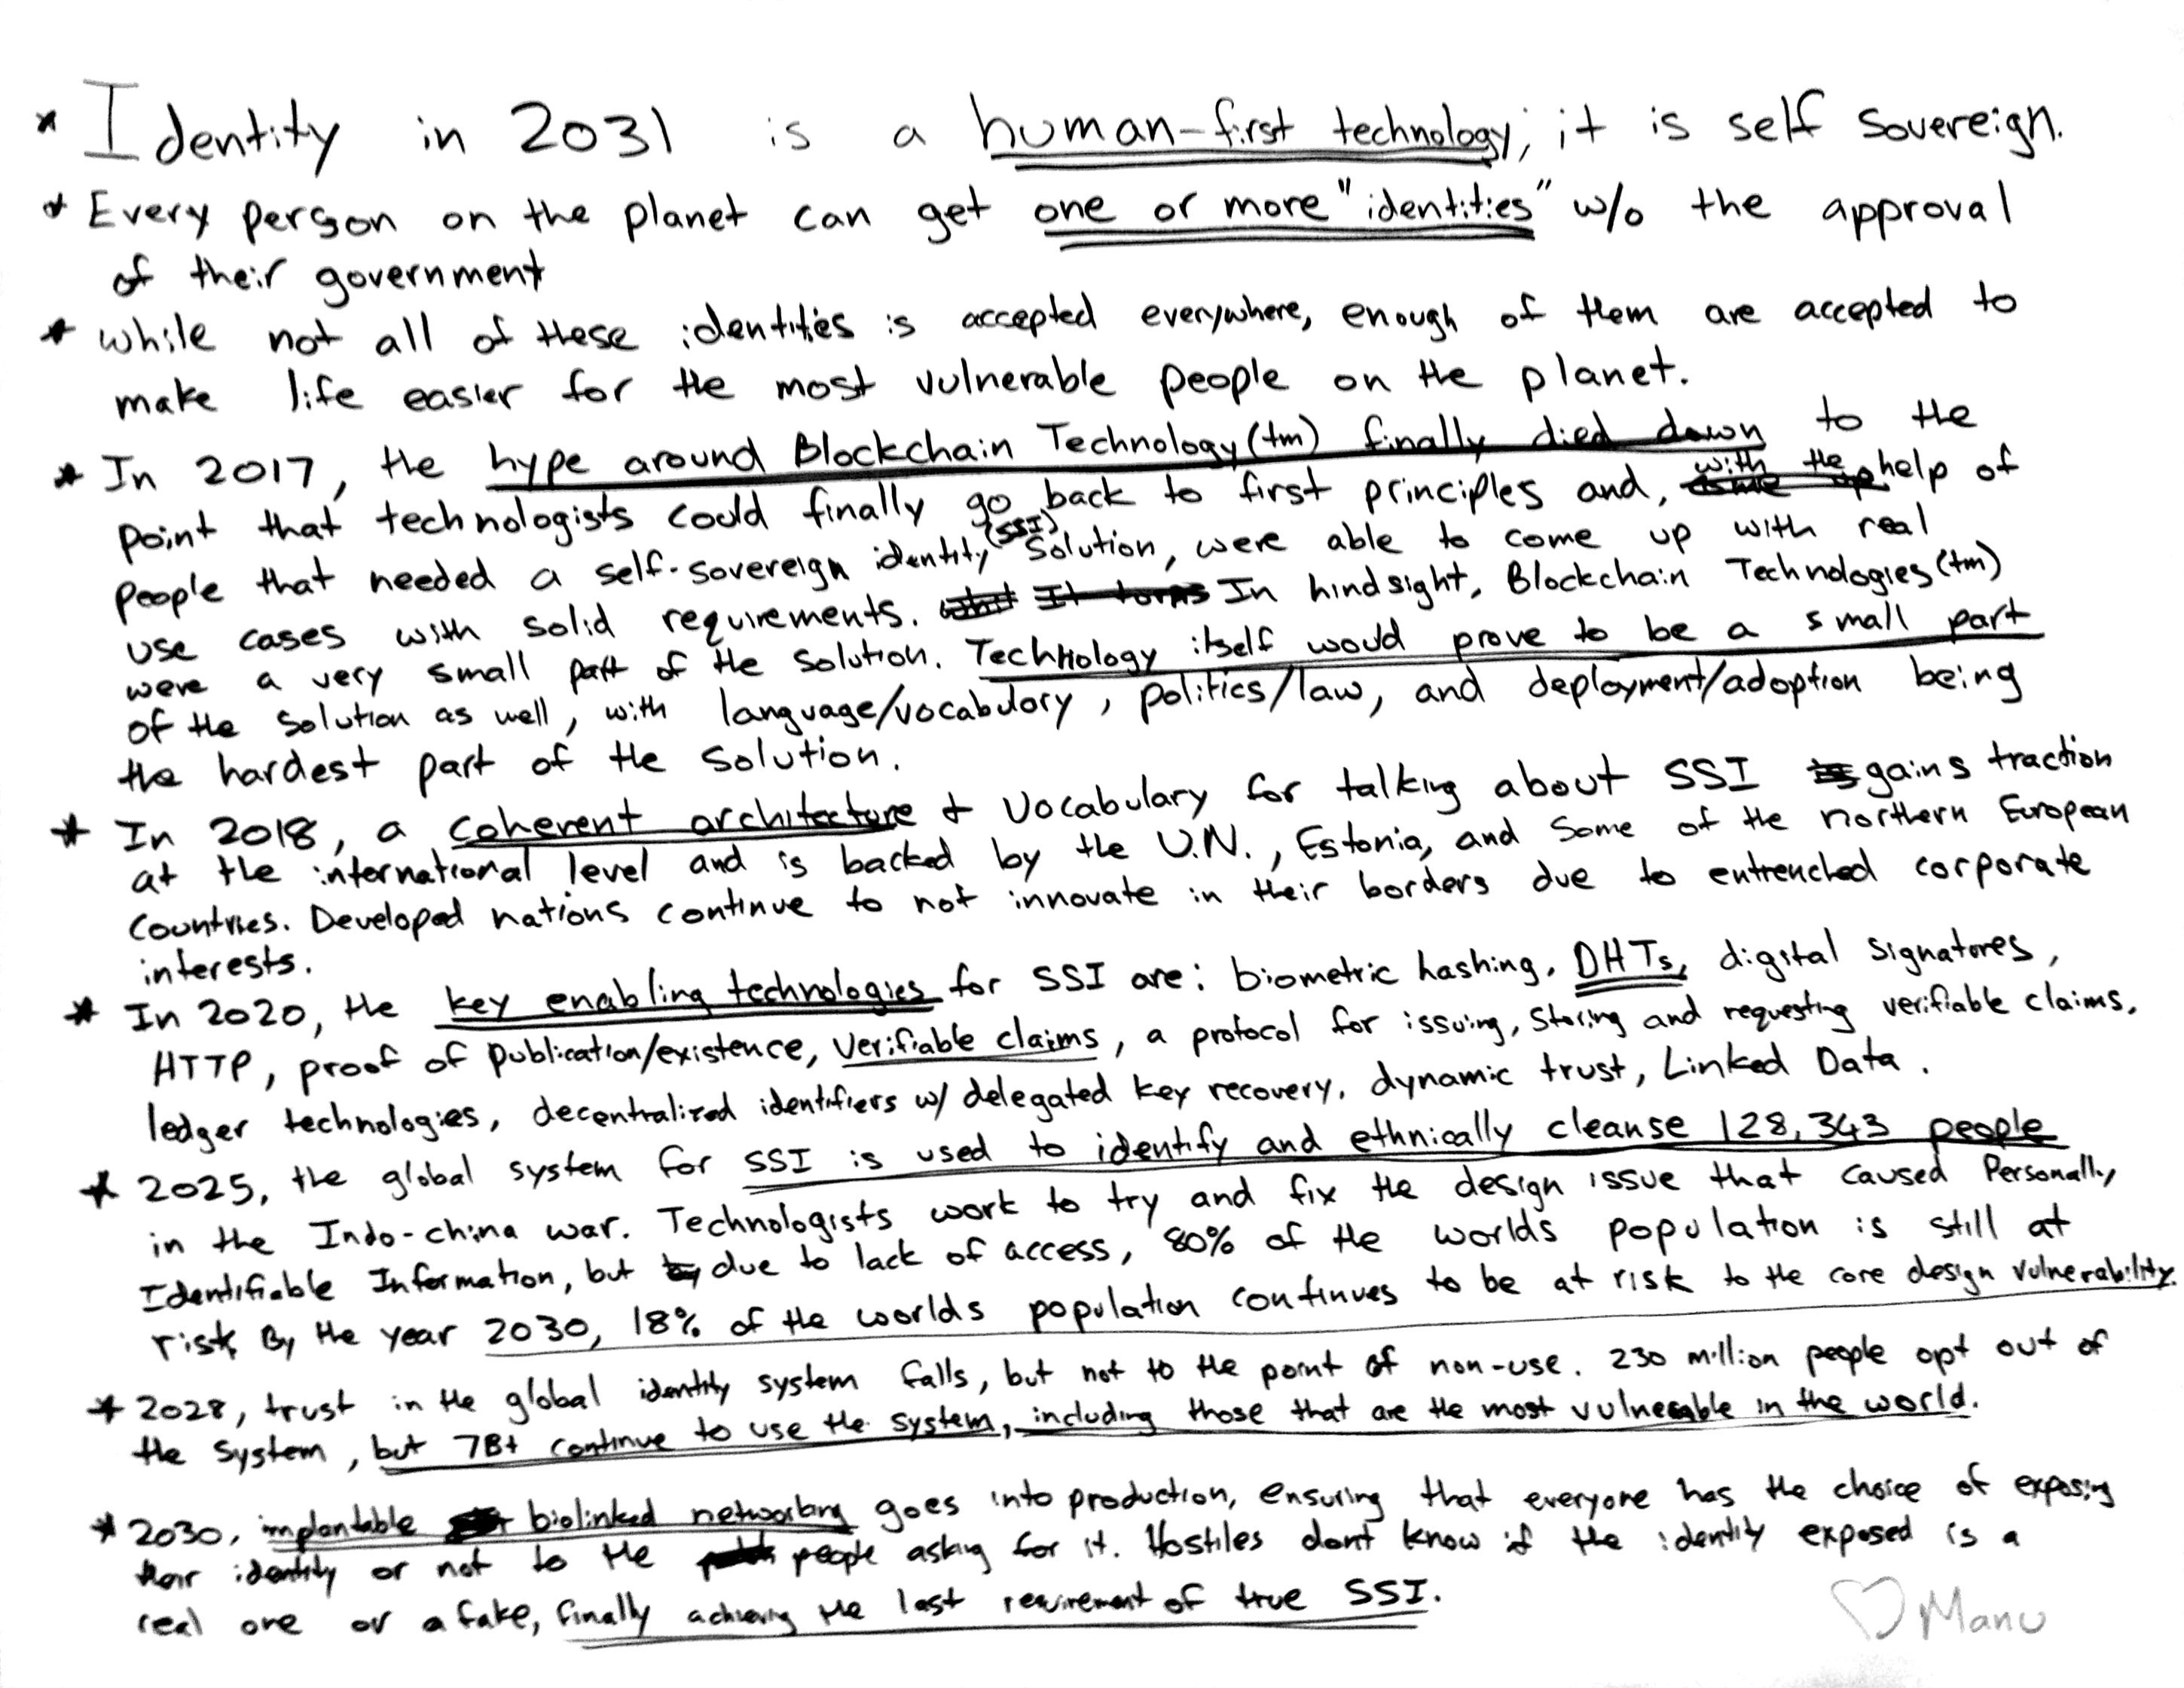 * Identity in 2031 is a human-first technology; it is self sovereign.
* Every person on the planet can get one or more "identities" w/o the approval
of their government
* while not all of these identities is accepted everywhere, enough of them are accepted to
make life easier for the most vulnerable people on the planet.
* In 2017, the hype around Blockchain Technology(tm) finally died down to the
point that technologists could finally go back to first principles and, with the help of
people that needed a self-sovereign identity (SSI) solution, were able to come up with real
use cases with solid requirements. In hindsight, Blockchain Technologies(tm)
were a very small part of the solution. Technology itself would prove to be a small part
of the solution as well, with language/vocabulory, politics/law, and deployment/adoption being
the hardest part of the solution.
* In 2018, a coherent architecture & vocabulary for talking about SSI gains traction
at the international level and is backed by the U.N., Estonia, and some of the northern European
countries. Developed nations continue to not innovate in their borders due to entrenched corporate
interests.
* In 2020, the key enabling technologies for SSI are: biometric hashing, DHTs, digital signatures,
HTTP, proof of publication/existence, verifiable claims, a protocol for issuing, storing and requesting verifiable claims,
ledger technologies, decentralized identifiers w/ delegated key recovery, dynamic trust, Linked Data.
* 2025, the global system for SSI is used to identify and ethnically cleanse 128,343 people
in the Indo-china war. Technologists work to try and fix the design issue that caused Personally
Identifiable Information, but due to lack of access, 80% of the worlds population is still at
risk. By the year 2030, 18% of the worlds population continues to be at risk to the core design vulnerability.
* 2028, trust in the global identity system falls, but not to the point of non-use. 230 million people opt out of
the system, but 7B+ continue to use the system, including those that are the most vulnerable in the world.
* 2030, implantable biolinked networking goes into production, ensuring that everyone has the choice of exposing
their identity or not to the people asking for it. Hostiles dont know if the identity exposed is a
real one or a fake, finally achieving the last requirement of true SSI.
♡ Manu